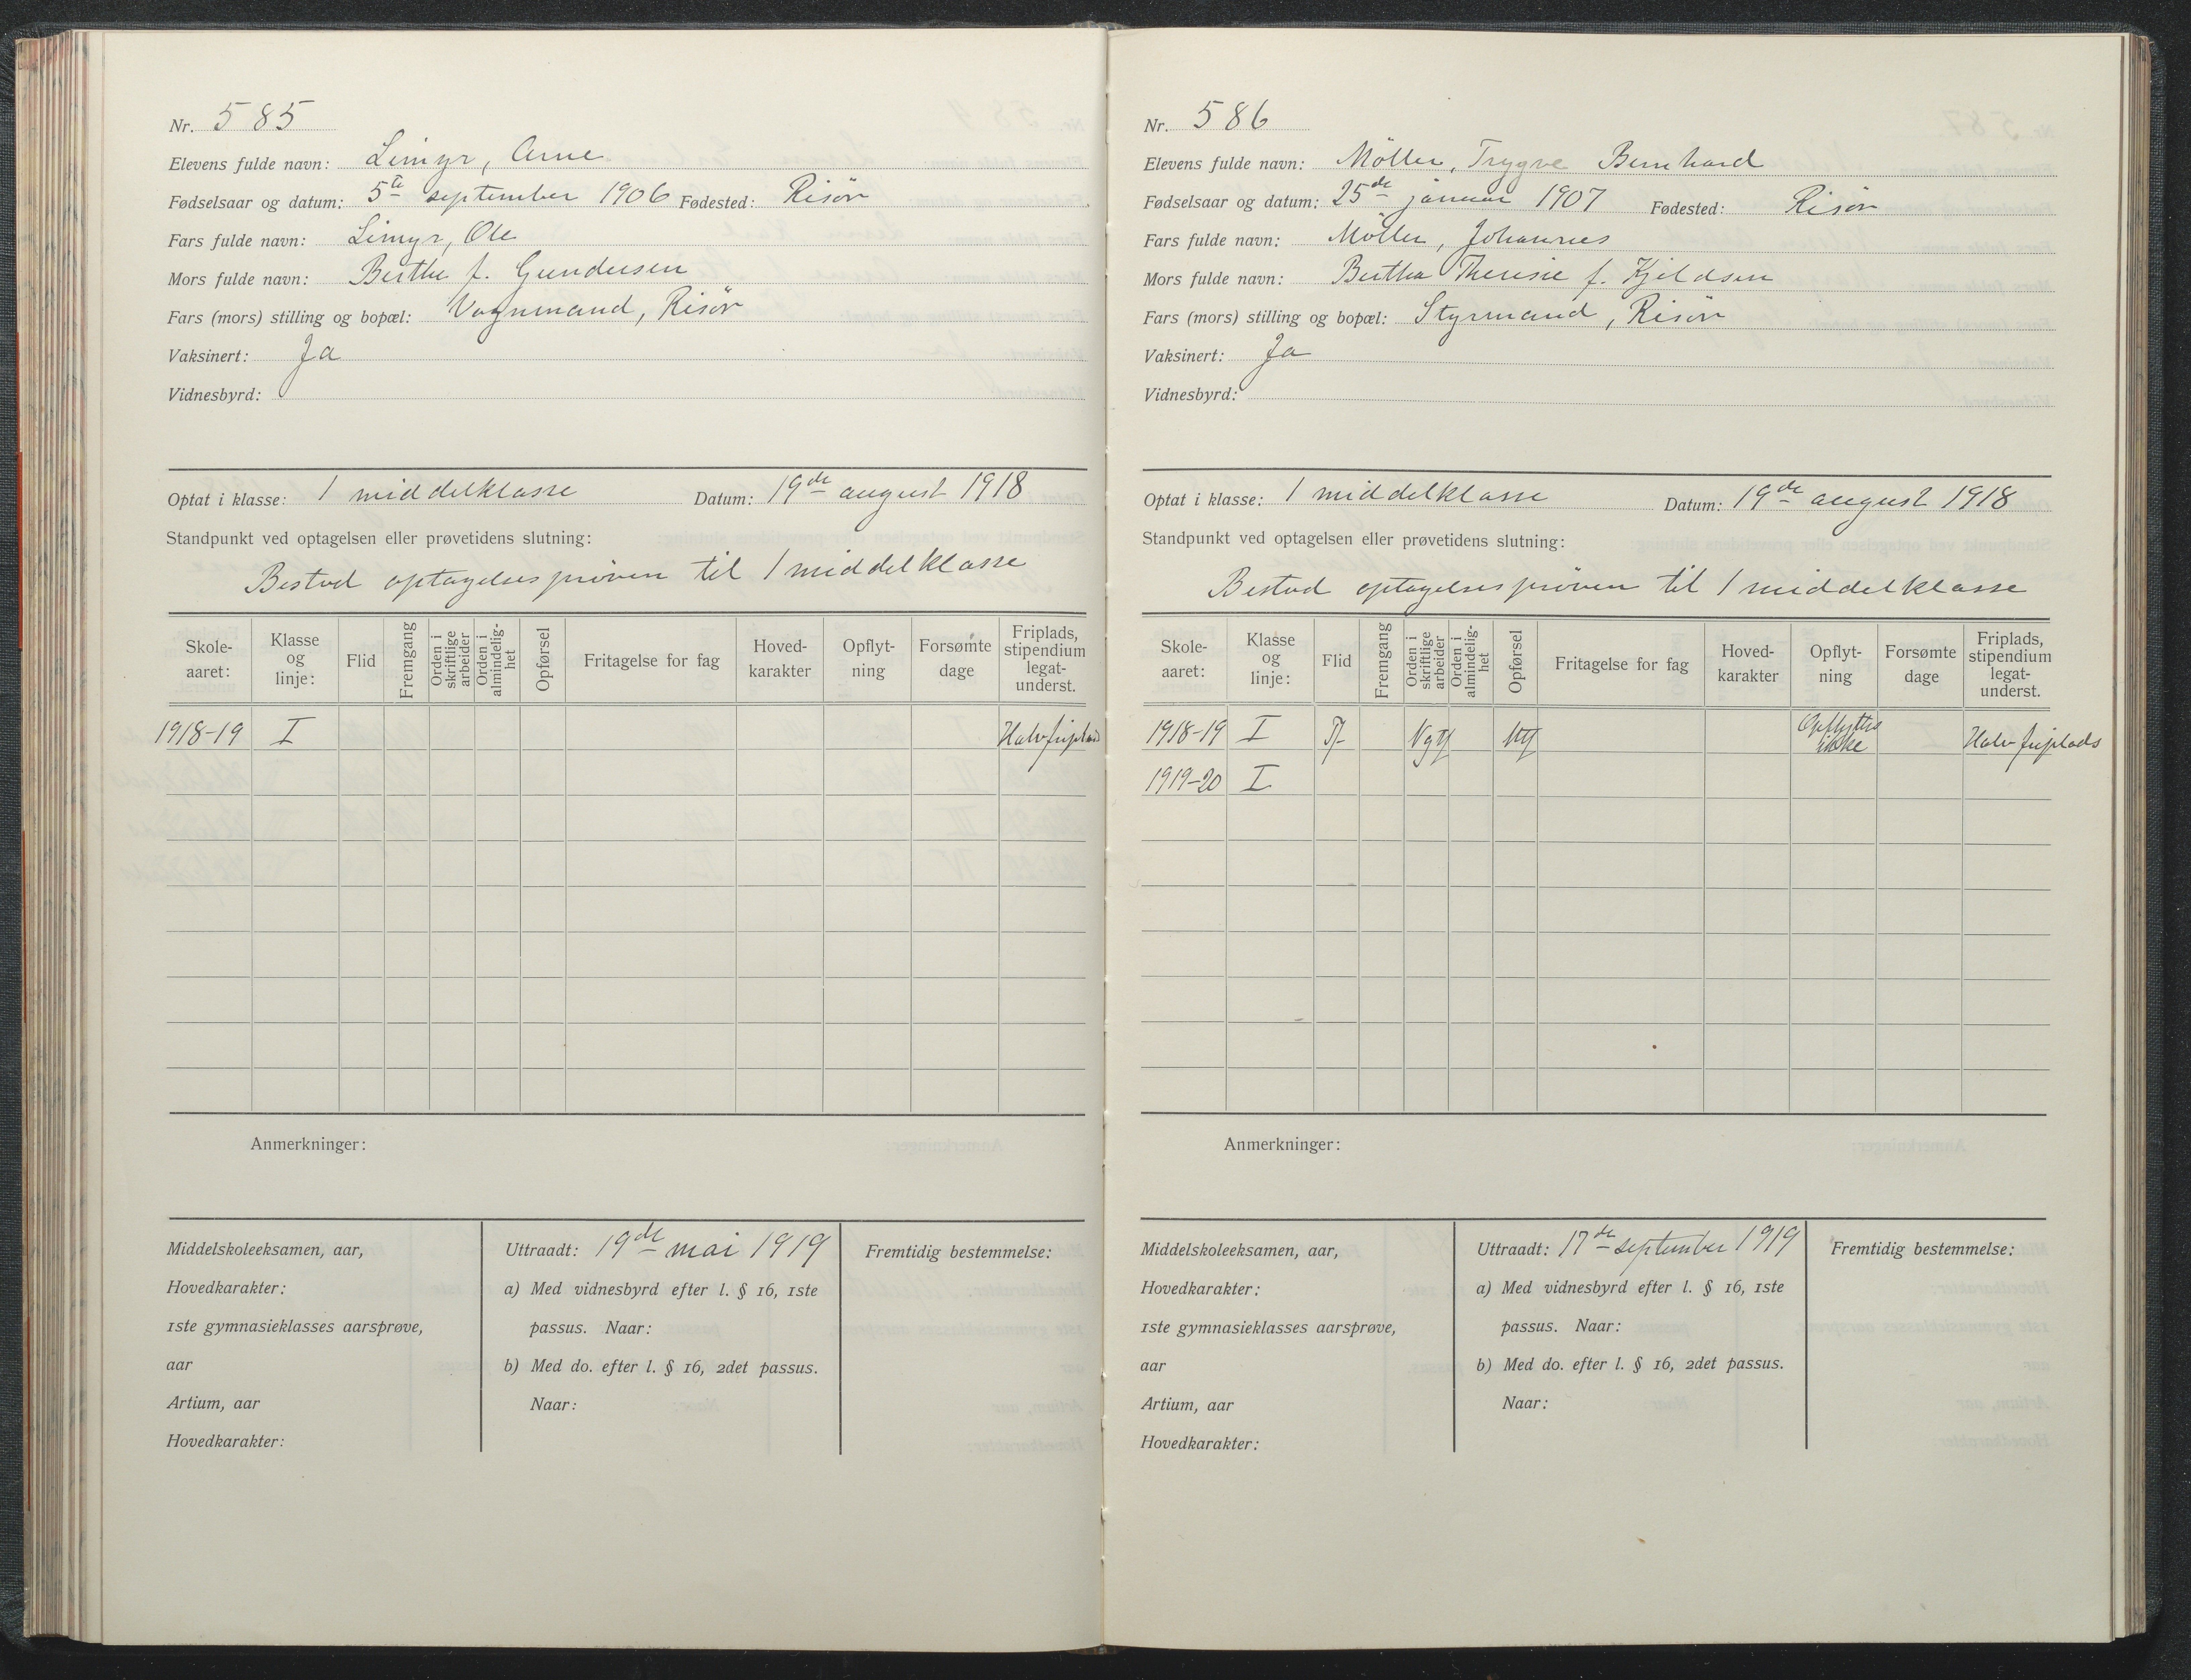 Nr. 585
Elevens fulde navn: Limyr, Arne
Fødselsaar og datum: 5te september 1906 Fødested: Risør
Fars fulde navn: Limyr, Ole
Mors fulde navn: Berthe f. Gundersen
Fars (mors) stilling og bopæl: Vognmand, Risør
Vaksinert: Ja
Vidnesbyrd:
Optat i klasse: 1 middelklasse Datum: 19de august 1918
Standpunkt ved optagelsen eller prøvetidens slutning:
Bestod optagelsesprøven til 1 middelklasse
Skole-aaret: Klasse og linje: Flid Fremgang Orden i skriftlige arbeider Orden i almindelig-het Opførsel Fritagelse for fag Hoved-karakter Opflyt-ning Forsømte dage Friplads, stipendium legat-underst.
1918-19 I Halv friplads
Anmerkninger:
Middelskoleeksamen, aar,
Hovedkarakter:
1ste gymnasieklasses aarsprøve,
aar
Artium, aar
Hovedkarakter:
Uttraadt: 19de mai 1919
a) Med vidnesbyrd efter l. § 16, 1ste
passus. Naar:
b) Med do. efter l. § 16, 2det passus.
Naar:
Fremtidig bestemmelse:
Nr. 586
Elevens fulde navn: Møller, Trygve Bernhard
Fødselsaar og datum: 25de januar 1907 Fødested: Risør
Fars fulde navn: Møller, Johannes
Mors fulde navn: Bertha Therese f. Kjeldsen
Fars (mors) stilling og bopæl: Styrmand, Risør
Vaksinert: Ja
Vidnesbyrd:
Optat i klasse: 1 middelklasse Datum: 19de august 1918
Standpunkt ved optagelsen eller prøvetidens slutning:
Bestod optagelsesprøven til 1 middelklasse
Skole-aaret: Klasse og linje: Flid Fremgang Orden i skriftlige arbeider Orden i almindelig-het Opførsel Fritagelse for fag Hoved-karakter Opflyt-ning Forsømte dage Friplads, stipendium legat-underst.
1918-19 I Opflyttes ikke Halv friplads
1919-20 I
Anmerkninger:
Middelskoleeksamen, aar,
Hovedkarakter:
1ste gymnasieklasses aarsprøve,
aar
Artium, aar
Hovedkarakter:
Uttraadt: 17de september 1919
a) Med vidnesbyrd efter l. § 16, 1ste
passus. Naar:
b) Med do. efter l. § 16, 2det passus.
Naar:
Fremtidig bestemmelse: